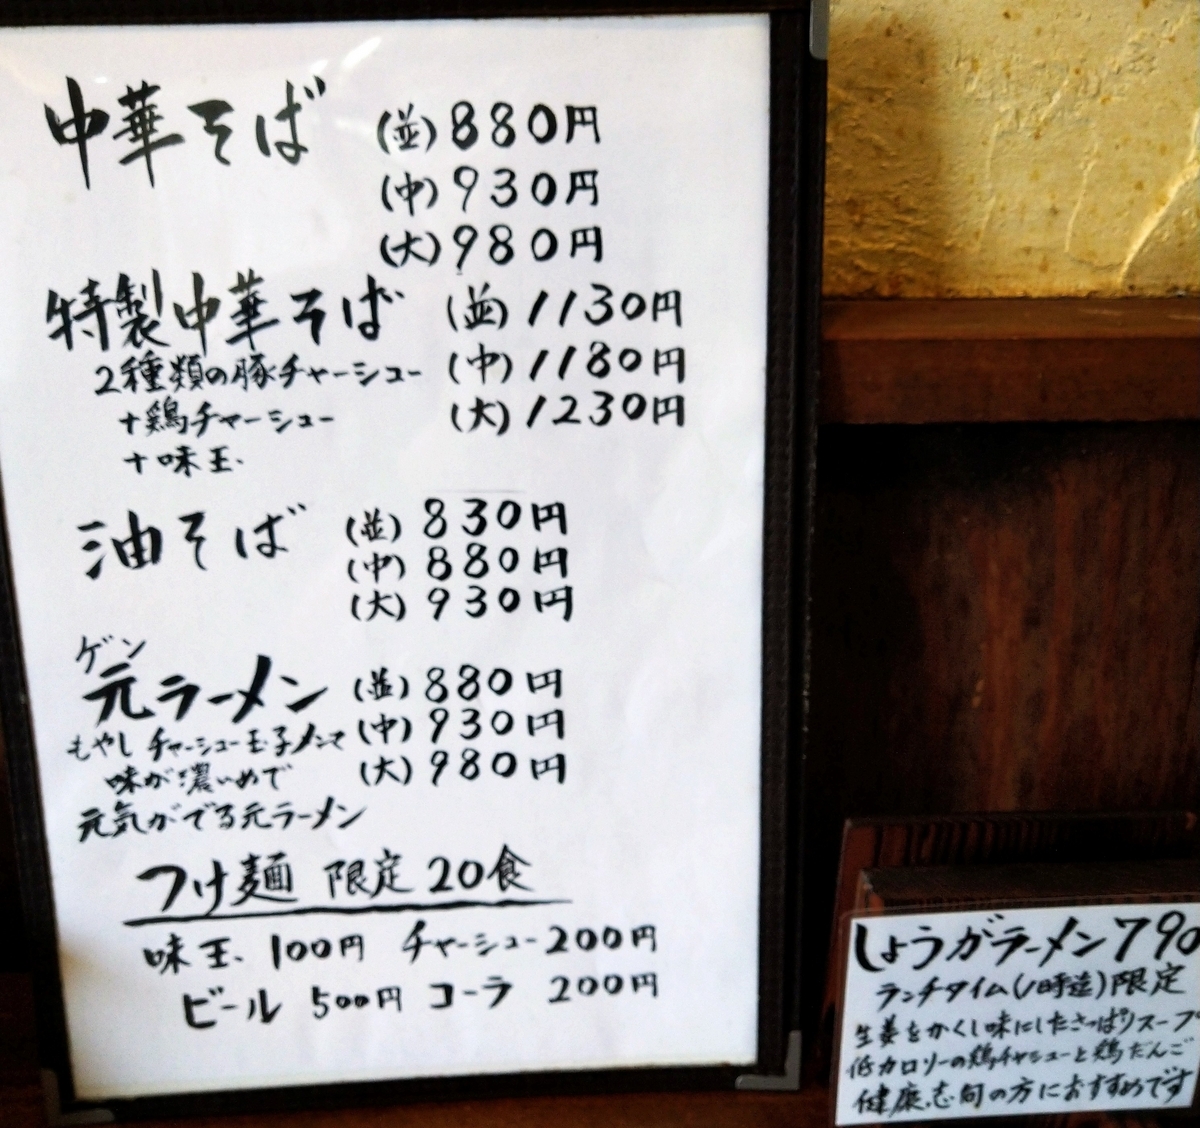 中華そば (並) 880円
(中) 930円
(大) 980円
特製中華そば (並) 1130円
2種類の豚チャーシュー (中) 1180円
+鶏チャーシュー (大) 1230円
+味玉
油そば (並) 830円
(中) 880円
(大) 930円
ゲン
元ラーメン (並) 880円
もやし チャーシュー玉子メンマ (中) 930円
味が濃いめで (大) 980円
元気がでる元ラーメン
つけ麺 限定20食
味玉 100円 チャーシュー200円
ビール 500円 コーラ 200円
しょうがラーメン790
ランチタイム(1時迄)限定
生姜をかくし味にしたさっぱりスープ
低カロリーの鶏チャシューと鶏だんご
健康志向の方におすすめです